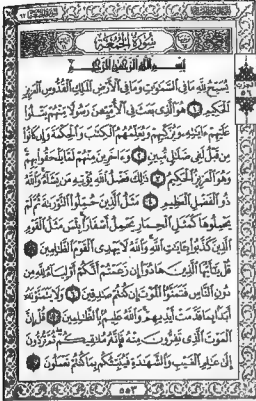 سُورَةُ الجُمُعَةِ
بِسْمِ اللَّهِ الرَّحْمَٰنِ الرَّحِيمِ
يُسَبِّحُ لِلَّهِ مَا فِي السَّمَٰوَٰتِ وَمَا فِي الْأَرْضِ الْمَلِكِ الْقُدُّوسِ الْعَزِيزِ
الْحَكِيمِ ١ هُوَ الَّذِي بَعَثَ فِي الْأُمِّيِّـۧنَ رَسُولًا مِّنْهُمْ يَتْلُوا
عَلَيْهِمْ ءَايَٰتِهِ وَيُزَكِّيهِمْ وَيُعَلِّمُهُمُ الْكِتَٰبَ وَالْحِكْمَةَ وَإِن كَانُوا
مِن قَبْلُ لَفِي ضَلَٰلٍ مُّبِينٍ ٢ وَءَاخَرِينَ مِنْهُمْ لَمَّا يَلْحَقُوا بِهِمْ
وَهُوَ الْعَزِيزُ الْحَكِيمُ ٣ ذَٰلِكَ فَضْلُ اللَّهِ يُؤْتِيهِ مَن يَشَاءُ وَاللَّهُ
ذُو الْفَضْلِ الْعَظِيمِ ٤ مَثَلُ الَّذِينَ حُمِّلُوا التَّوْرَىٰةَ ثُمَّ لَمْ
يَحْمِلُوهَا كَمَثَلِ الْحِمَارِ يَحْمِلُ أَسْفَارًا بِئْسَ مَثَلُ الْقَوْمِ
الَّذِينَ كَذَّبُوا بِـَٔايَٰتِ اللَّهِ وَاللَّهُ لَا يَهْدِي الْقَوْمَ الظَّٰلِمِينَ ٥
قُلْ يَٰأَيُّهَا الَّذِينَ هَادُوا إِن زَعَمْتُمْ أَنَّكُمْ أَوْلِيَاءُ لِلَّهِ مِن
دُونِ النَّاسِ فَتَمَنَّوُا الْمَوْتَ إِن كُنتُمْ صَٰدِقِينَ ٦ وَلَا يَتَمَنَّوْنَهُ
أَبَدًا بِمَا قَدَّمَتْ أَيْدِيهِمْ وَاللَّهُ عَلِيمٌ بِالظَّٰلِمِينَ ٧ قُلْ إِنَّ
الْمَوْتَ الَّذِي تَفِرُّونَ مِنْهُ فَإِنَّهُ مُلَٰقِيكُمْ ثُمَّ تُرَدُّونَ
إِلَىٰ عَٰلِمِ الْغَيْبِ وَالشَّهَٰدَةِ فَيُنَبِّئُكُم بِمَا كُنتُمْ تَعْمَلُونَ ٨
٥٥٣